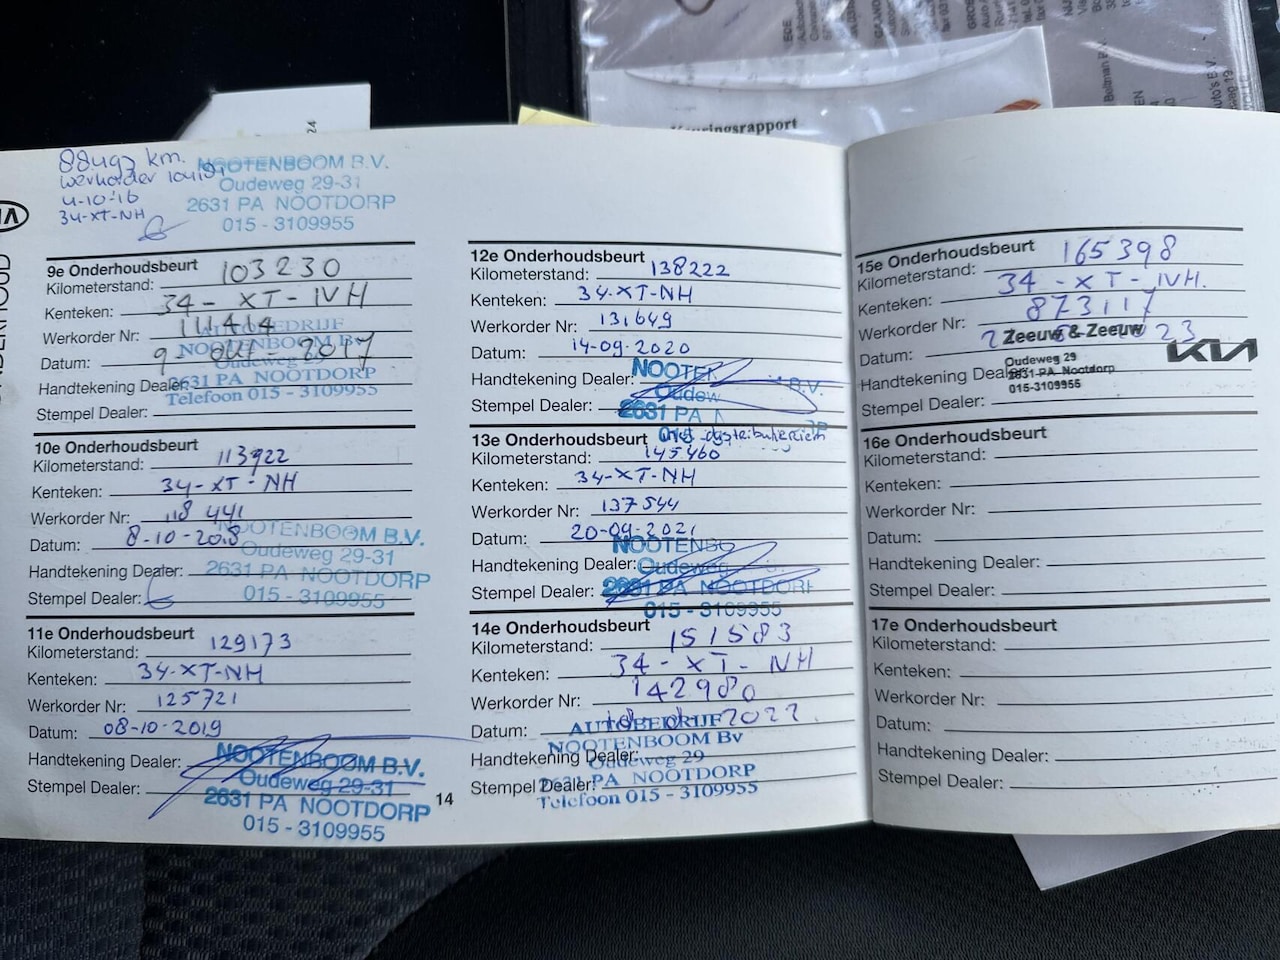 Keuringsrapport
88492 km.
werkorder
4-10-16
34-XT-NH
NOOTENBOOM B.V.
Oudeweg 29-31
2631 PA NOOTDORP
015 - 3109955
9e Onderhoudsbeurt
Kilometerstand: 103230
Kenteken: 34-XT-NH
Werkorder Nr: 111414
Datum: 9 - okt - 2017
Handtekening Dealer:
Stempel Dealer:
AUTOBEDRIJF
NOOTENBOOM Bv
Oudeweg 29
2631 PA NOOTDORP
Telefoon 015 - 3109955
10e Onderhoudsbeurt
Kilometerstand: 113922
Kenteken: 34-XT-NH
Werkorder Nr: 118441
Datum: 8-10-2018
Handtekening Dealer:
Stempel Dealer:
NOOTENBOOM B.V.
Oudeweg 29-31
2631 PA NOOTDORP
015 - 3109955
11e Onderhoudsbeurt
Kilometerstand: 129173
Kenteken: 34-XT-NH
Werkorder Nr: 125721
Datum: 08-10-2019
Handtekening Dealer:
Stempel Dealer:
NOOTENBOOM B.V.
Oudeweg 29-31
2631 PA NOOTDORP
015 - 3109955
14
12e Onderhoudsbeurt
Kilometerstand: 138222
Kenteken: 34-XT-NH
Werkorder Nr: 131649
Datum: 14-09-2020
Handtekening Dealer:
Stempel Dealer:
NOOTEN B.V.
Oudew
2631 PA N
13e Onderhoudsbeurt
Kilometerstand: 145460
Kenteken: 34-XT-NH
Werkorder Nr: 137544
Datum: 20-09-2021
Handtekening Dealer:
Stempel Dealer:
NOOTENBO
Oudeweg
2631 PA NOOTDORP
015 - 3109955
14e Onderhoudsbeurt
Kilometerstand: 151583
Kenteken: 34-XT-NH
Werkorder Nr: 142980
Datum: 2022
Handtekening Dealer:
Stempel Dealer:
AUTOBEDRIJF
NOOTENBOOM Bv
Oudeweg 29
2631 PA NOOTDORP
Telefoon 015 - 3109955
15e Onderhoudsbeurt
Kilometerstand: 165398
Kenteken: 34-XT-NH.
Werkorder Nr: 873117
Datum: 23
Handtekening Dealer:
Stempel Dealer:
Zeeuw & Zeeuw KIA
Oudeweg 29
2631 PA Nootdorp
015-3109955
16e Onderhoudsbeurt
Kilometerstand:
Kenteken:
Werkorder Nr:
Datum:
Handtekening Dealer:
Stempel Dealer:
17e Onderhoudsbeurt
Kilometerstand:
Kenteken:
Werkorder Nr:
Datum:
Handtekening Dealer:
Stempel Dealer: